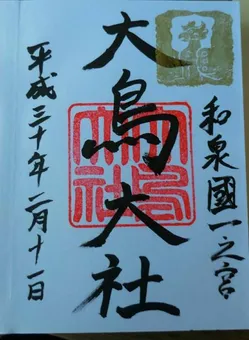 和泉國一之宮
大鳥大社
大鳥
大社
平成三十年二月十一日